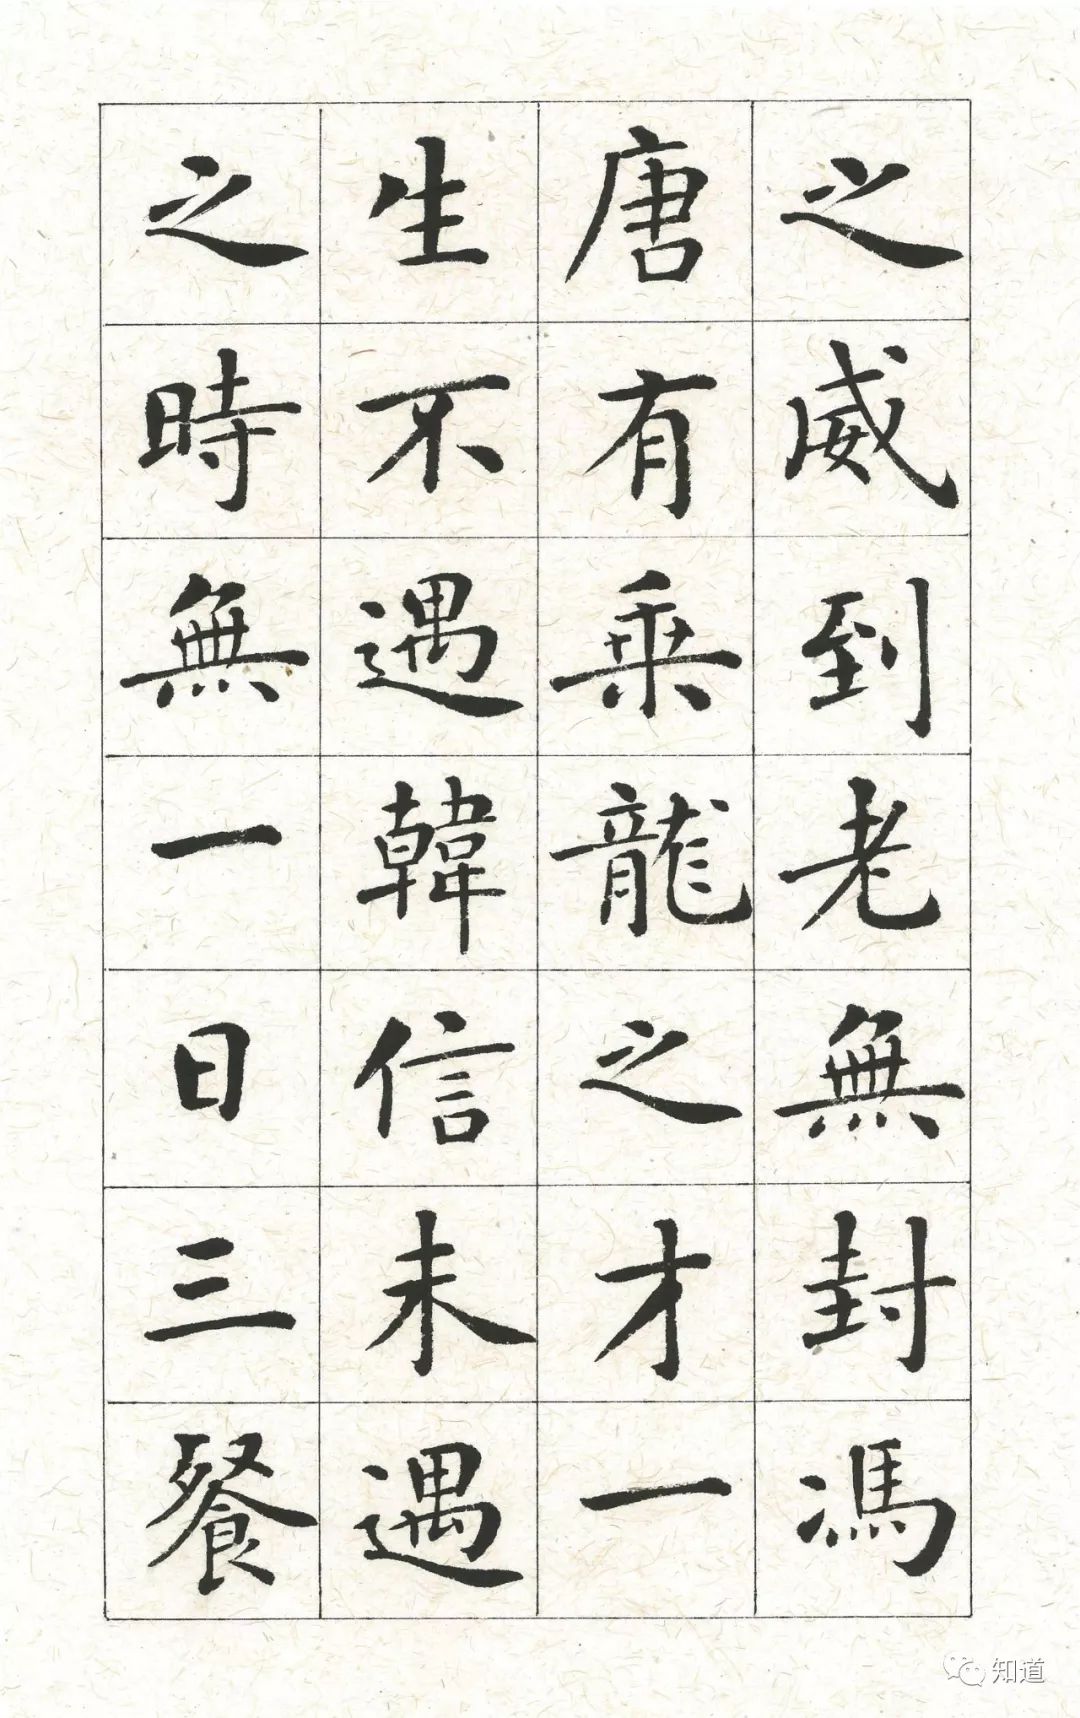 之威到老無封馮
唐有乗龍之才一
生不遇韓信未遇
之時無一日三餐
知道